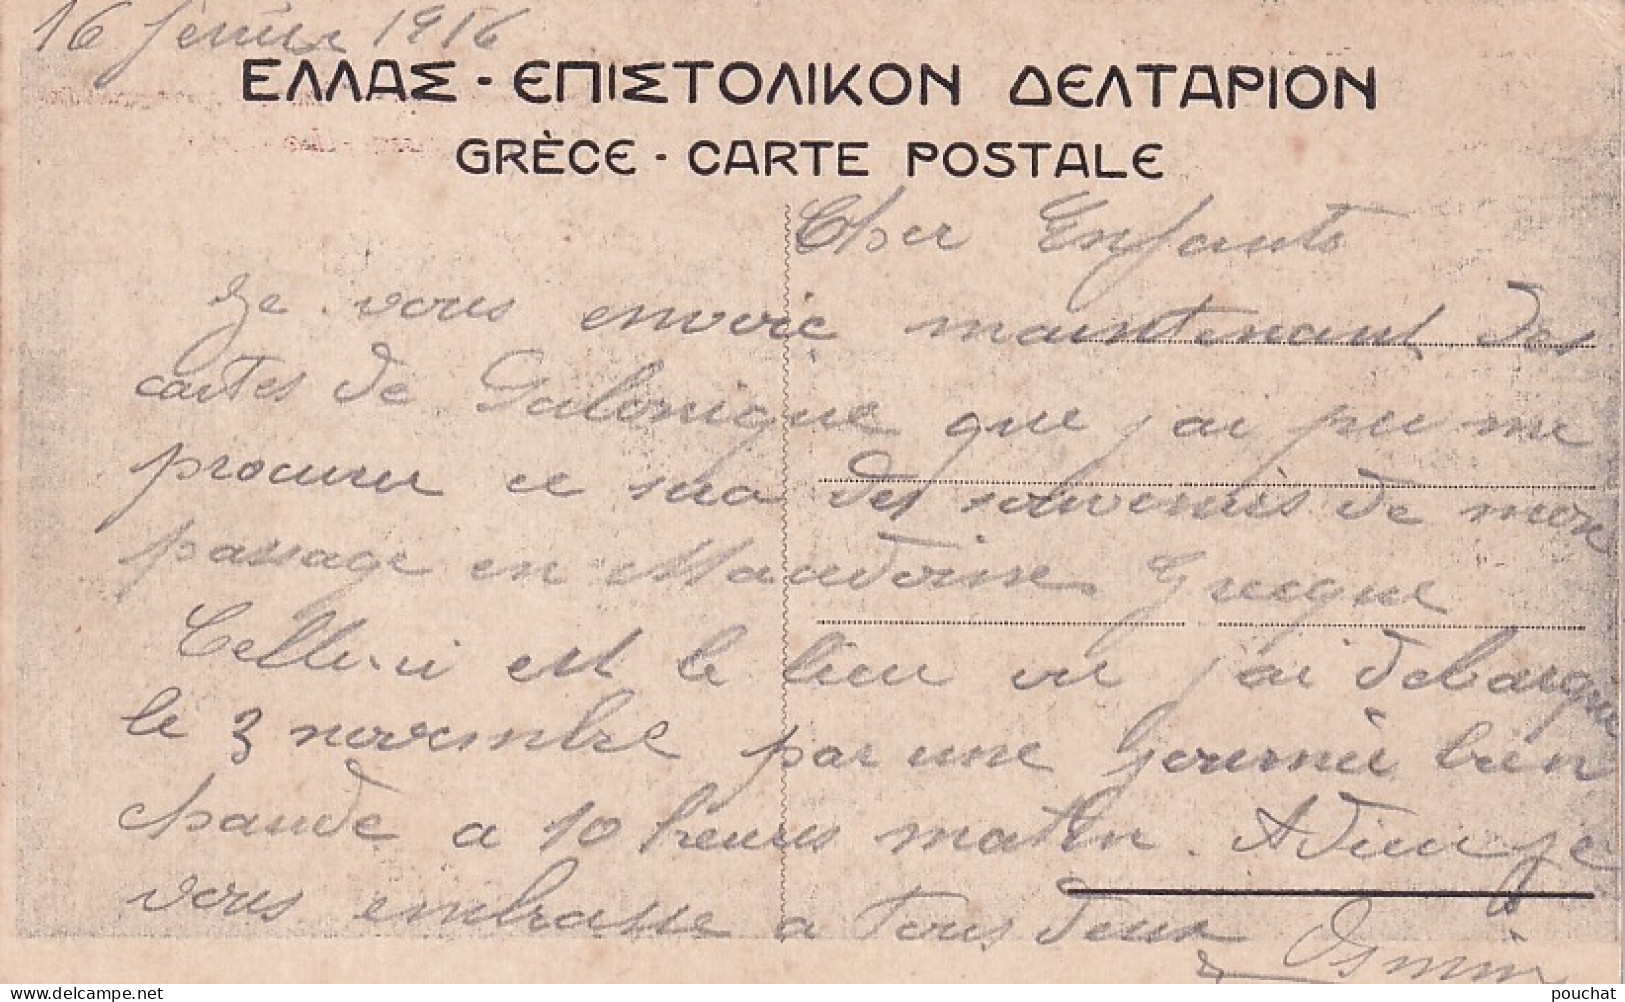 16 février 1916
ΕΛΛΑΣ - ΕΠΙΣΤΟΛΙΚΟΝ ΔΕΛΤΑΡΙΟΝ
GRÈCE - CARTE POSTALE
Cher Enfants
Je vous envoie maintenant des
cartes de Salonique que j'ai pu me
procurer ce sera des souvenirs de mon
passage en Macedoine Grecque
Celle-ci est le lieu ou j'ai debarqué
le 3 novembre par une Journée bien
chaude a 10 heures matin. Adieu je
vous embrasse a tous deux
pouchat